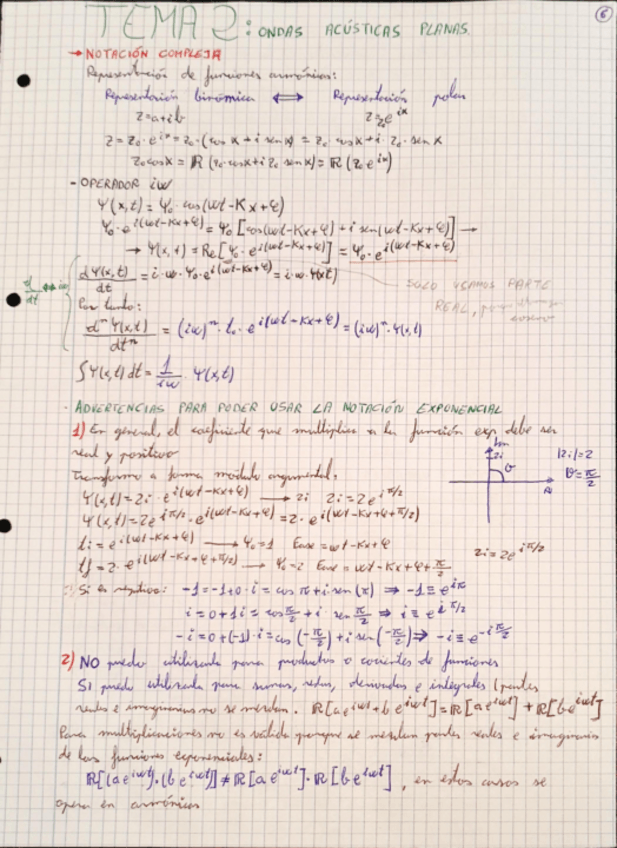 6
TEMA 2: ONDAS ACÚSTICAS PLANAS
→ NOTACIÓN COMPLEJA
Representación de funciones armónicas:
Representación binómica ⟺ Representación polar
z=a+ib z=z₀e^{ix}
z=z₀·e^{ix}=z₀·(cos x+i sen x)=z₀ cos x+i·z₀·sen x
z₀cos x=ℝ(z₀·cos x+i z₀ sen x)=ℝ(z₀e^{ix})
- OPERADOR iω
Ψ(x,t)=Ψ₀·cos(ωt-Kx+φ)
Ψ₀·e^{i(ωt-Kx+φ)}=Ψ₀[cos(ωt-Kx+φ)+i sen(ωt-Kx+φ)]→
→ Ψ(x,t)=Re[Ψ₀·e^{i(ωt-Kx+φ)}]=Ψ₀·e^{i(ωt-Kx+φ)}
d/dt ↔ iω
dΨ(x,t)/dt=i·ω·Ψ₀·e^{i(ωt-Kx+φ)}=i·ω·Ψ(x,t)
SOLO USAMOS PARTE
REAL,
coseno
Por tanto:
dⁿΨ(x,t)/dtⁿ=(iω)ⁿ·Ψ₀·e^{i(ωt-Kx+φ)}=(iω)ⁿ·Ψ(x,t)
∫Ψ(x,t)dt=1/iω·Ψ(x,t)
· ADVERTENCIAS PARA PODER USAR LA NOTACIÓN EXPONENCIAL
1) En general, el coeficiente que multiplica a la función exp. debe ser
real y positivo
Im
2i
θ
|2i|=2
θ=π/2
Transformo a forma módulo argumental.
Ψ(x,t)=2i·e^{i(ωt-Kx+φ)} → 2i 2i=2e^{iπ/2}
Ψ(x,t)=2e^{iπ/2}·e^{i(ωt-Kx+φ)}=2·e^{i(ωt-Kx+φ+π/2)}
Ψi=e^{i(ωt-Kx+φ)} → Ψ₀=1 Fase=ωt-Kx+φ
2i=2e^{iπ/2}
Ψf=2·e^{i(ωt-Kx+φ+π/2)} → Ψ₀=2 Fase=ωt-Kx+φ+π/2
Si es negativo: -1=-1+0·i=cos π+i·sen(π) ⇒ -1≡e^{iπ}
i=0+1i=cos π/2+i·sen π/2 ⇒ i≡e^{iπ/2}
-i=0+(-1)·i=cos(-π/2)+i sen(-π/2) ⇒ -i≡e^{-iπ/2}
2) NO puedo utilizarla para productos o cocientes de funciones
SI puedo utilizarla para sumas, restas, derivadas e integrales (partes
reales e imaginarias no se mezclan. ℝ[ae^{iωt}+be^{iωt}]=ℝ[ae^{iωt}]+ℝ[be^{iωt}]
Para multiplicaciones no es válida porque se mezclan partes reales e imaginarias
de las funciones exponenciales:
ℝ[(ae^{iωt})·(be^{iωt})]≠ℝ[ae^{iωt}]·ℝ[be^{iωt}], en estos casos se
opera en armónicas